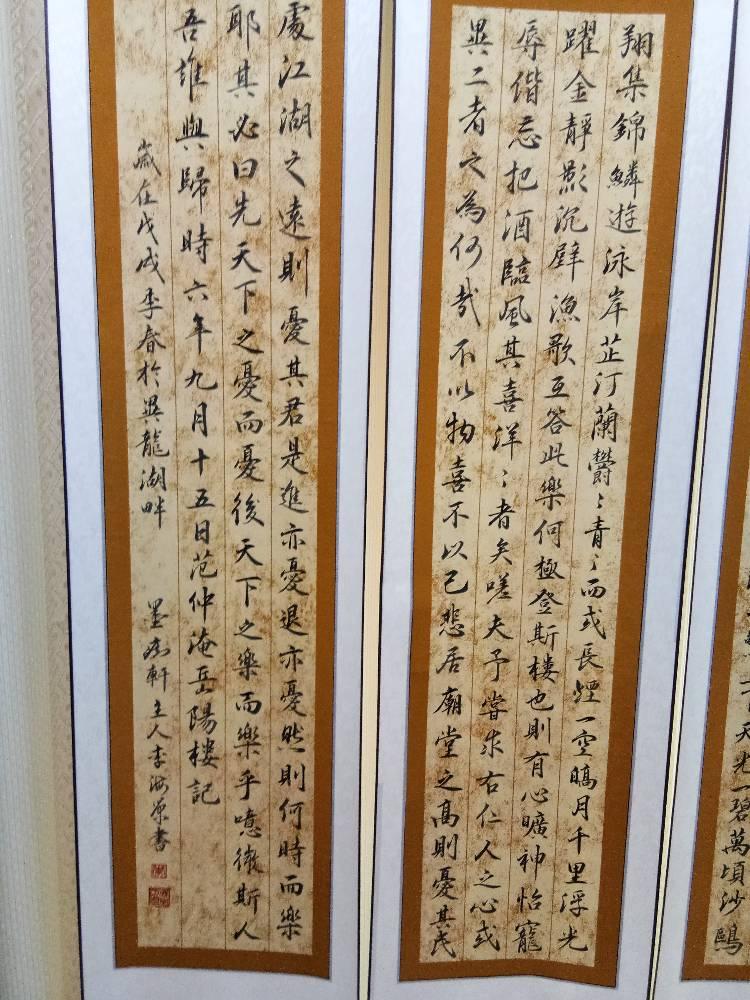 天光一碧萬頃沙鷗
翔集錦鱗游泳岸芷汀蘭鬱〻青〻而或長煙一空皜月千里浮光
躍金靜影沉璧漁歌互答此樂何極登斯樓也則有心曠神怡寵
辱偕忘把酒臨風其喜洋〻者矣嗟夫予嘗求古仁人之心或
異二者之為何哉不以物喜不以己悲居廟堂之高則憂其民
處江湖之遠則憂其君是進亦憂退亦憂然則何時而樂
耶其必曰先天下之憂而憂後天下之樂而樂乎噫微斯人
吾誰與歸時六年九月十五日范仲淹岳陽樓記
歲在戊戌季春於異龍湖畔 墨軒主人李海原書